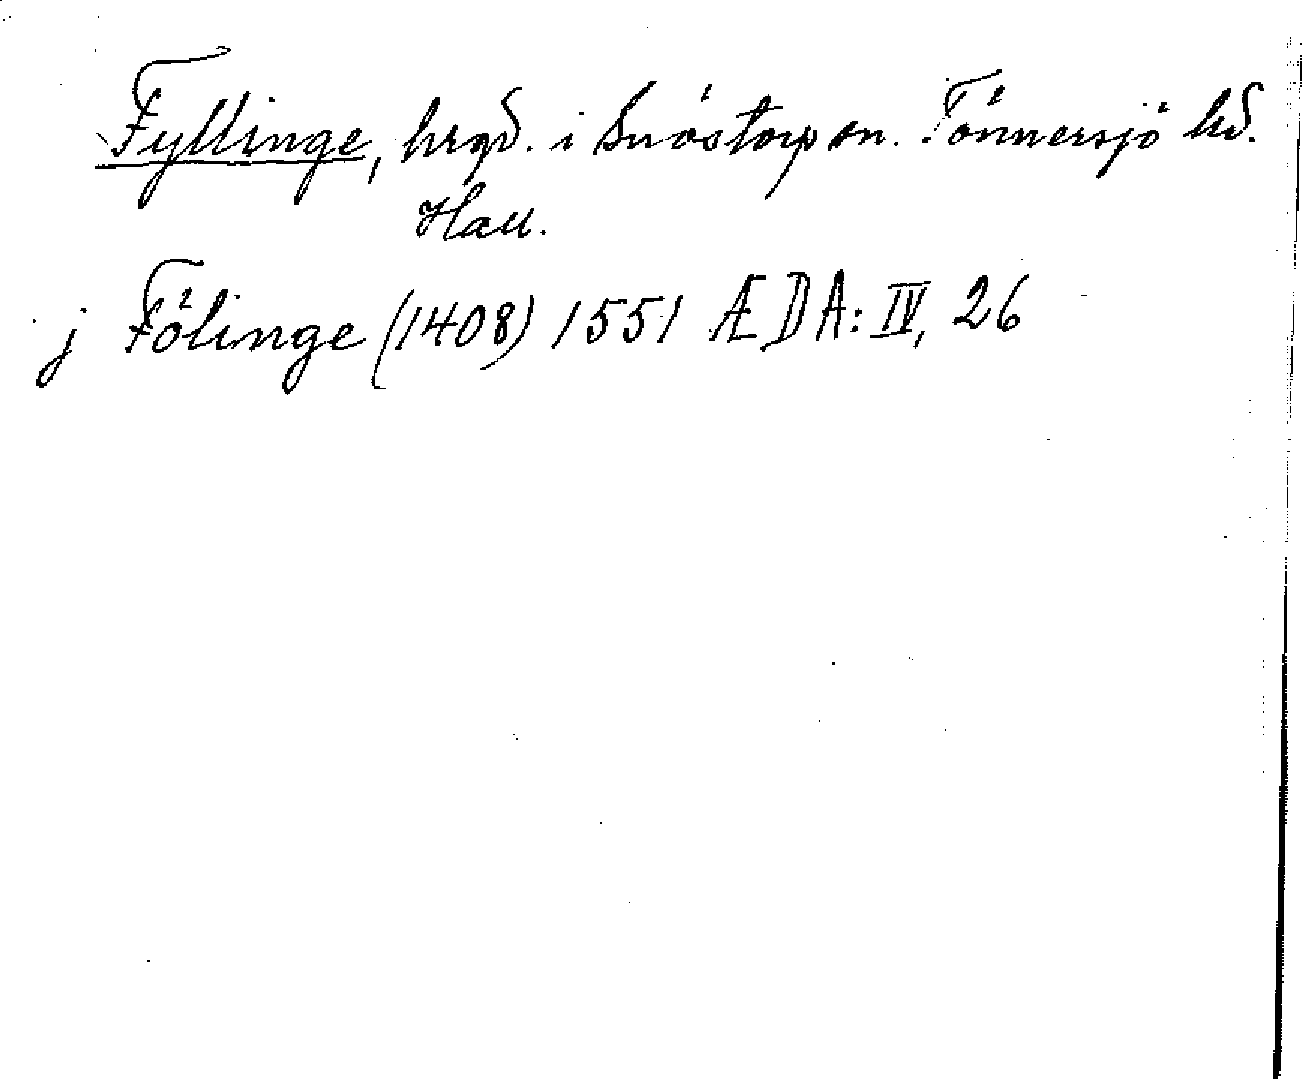 Fyllinge, hrgd. i Snöstorp sn. Tönnersjö hd.
Hall.
j Fölinge (1408) 1551 ÆDA: IV, 26